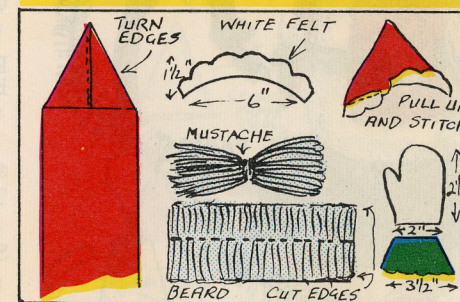 TURN
EDGES
WHITE FELT
1 1/2"
6"
PULL UP
AND STITCH
MUSTACHE
2"
3 1/2"
BEARD
CUT EDGES